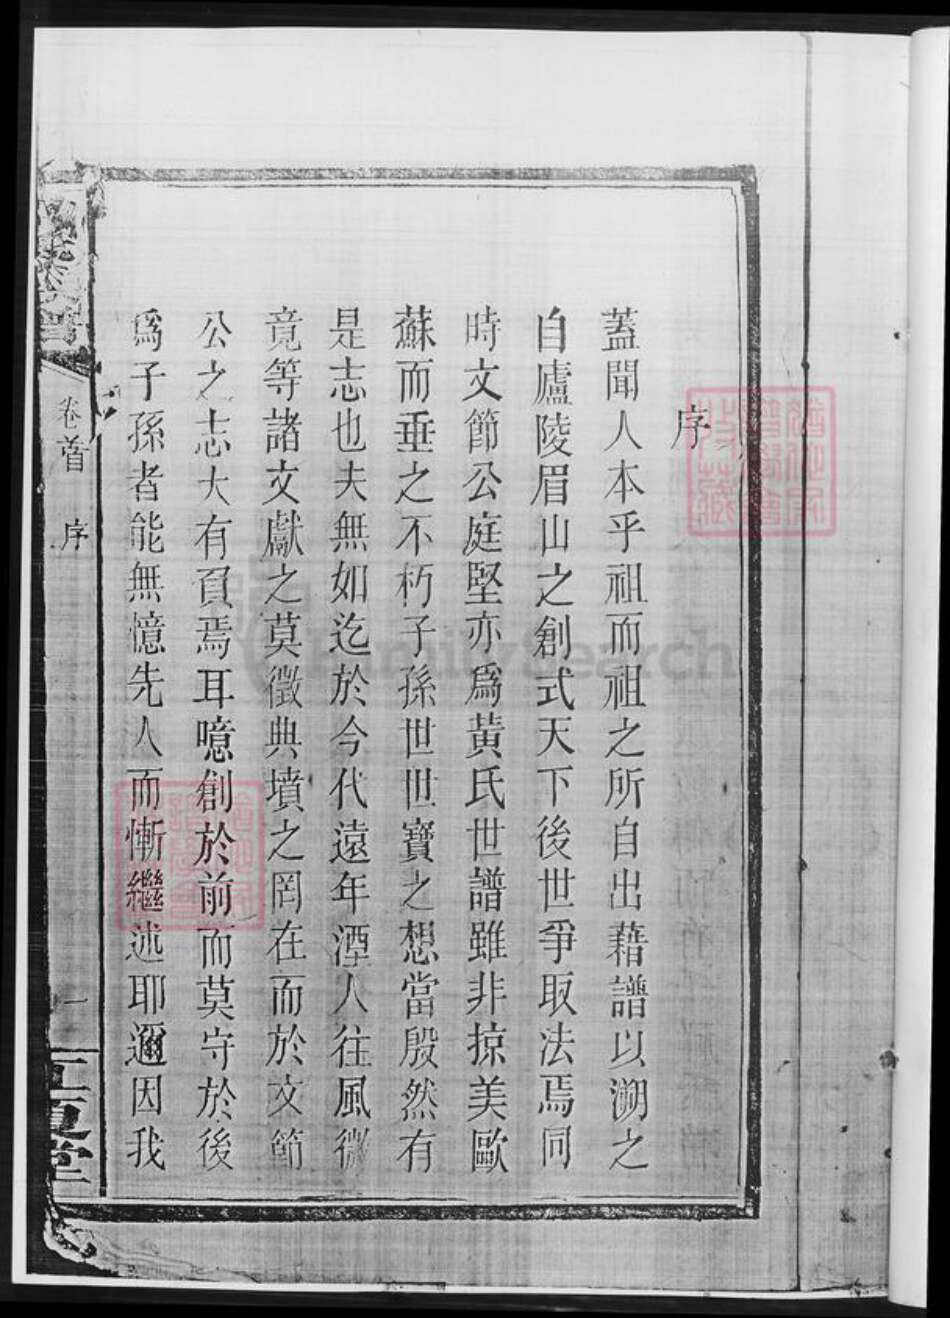 序
蓋聞人本乎祖而祖之所自出藉譜以溯之
自廬陵眉山之創式天下後世爭取法焉同
時文節公庭堅亦爲黃氏世譜雖非掠美歐
蘇而垂之不朽子孫世世寶之想當殷然有
是志也夫無如迄於今代遠年湮人往風微
竟等諸文獻之莫徵典墳之罔在而於文節
公之志大有負焉耳噫創於前而莫守於後
爲子孫者能無憶先人而慚繼述耶邇因我
卷首 序 一
江夏堂
FamilySearch